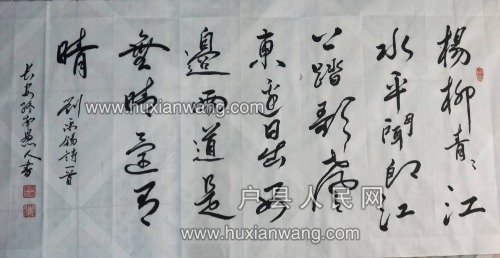 楊柳青々江
水平聞郎江
上踏歌聲
東邊日出西
邊雨道是
無晴還有
晴
劉禹錫詩一首
长安终南愚人書
www.huxianwang.com
户县人民网
www.huxianwang.com